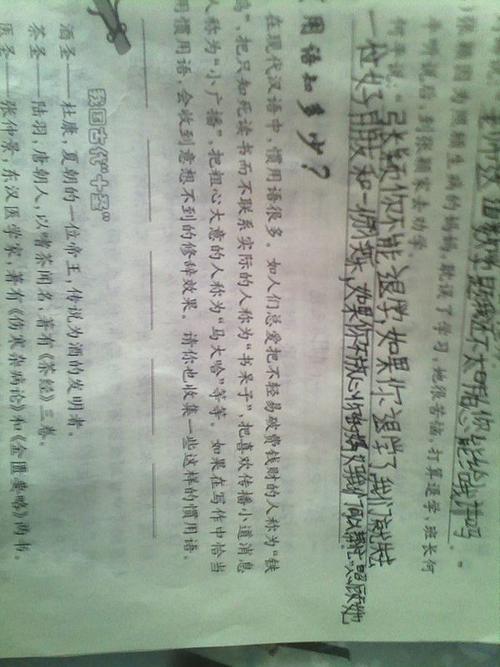 张颖因为照顾生病的妈妈,耽误了学习,她很苦恼,打算退学,班长何
平听说后,到张颖家去劝学。
何平说:"张颖你不能退学,如果你退学了我们就失去
一位好朋友和一份快乐,如果你不放心你的妈妈,我们可以帮忙照顾她
用语知多少?
在现代汉语中,惯用语很多。如人们总爱把不轻易破费钱财的人称为"铁
鸡",把只知死读书而不联系实际的人称为"书呆子",把喜欢传播小道消息
人称为"小广播",把粗心大意的人称为"马大哈"等等。如果在写作中恰当
用惯用语,会收到意想不到的修辞效果。请你也收集一些这样的惯用语。
我国古代"十圣"
酒圣——杜康,夏朝的一位帝王,传说为酒的发明者。
茶圣——陆羽,唐朝人,以嗜茶闻名,著有《茶经》三卷。
医圣——张仲景,东汉医学家,著有《伤寒杂病论》和《金匮要略》两书。